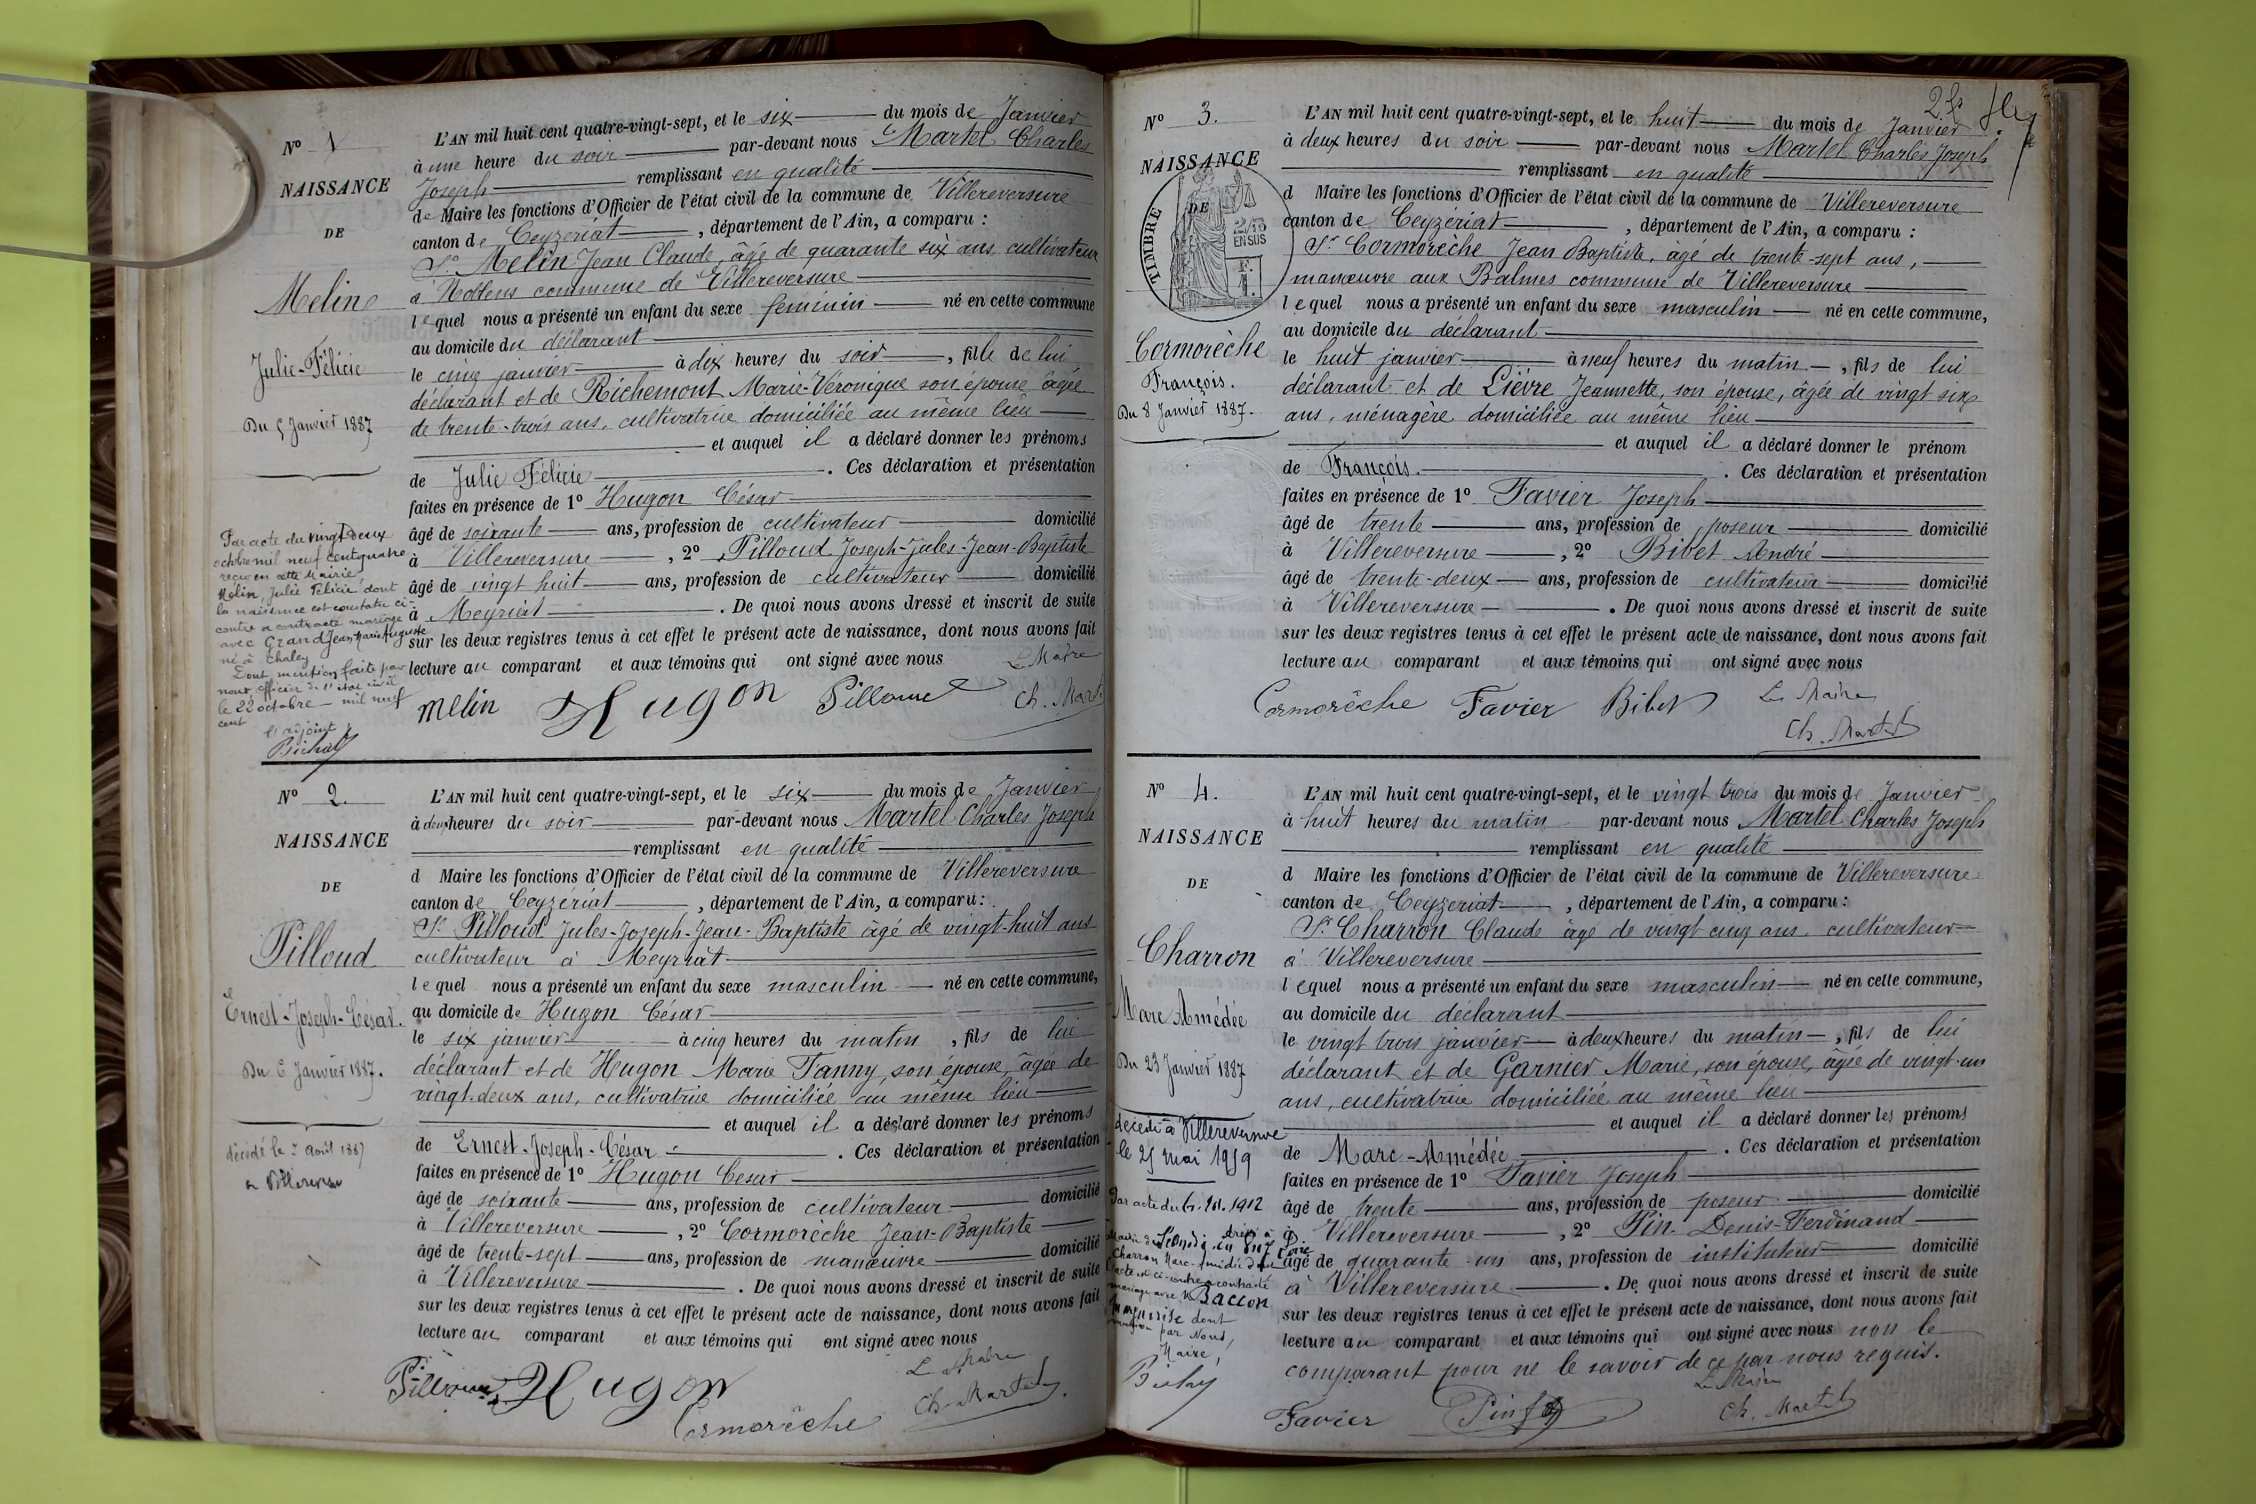 N° 1
NAISSANCE
DE
Melin
Julie-Félicie
Du 5 Janvier 1887
Par acte du vingt deux
octobre mil neuf cent quatre
reçu en cette Mairie,
Melin, Julie Félicie, dont
la naissance est constatée ci-
contre a contracté mariage
avec Grand Jean Marie Auguste
né à Chaley
Dont mention faite par
nous officier de l'état civil
le 22 octobre mil neuf
cent
l'adjoint
L'AN mil huit cent quatre-vingt-sept, et le six du mois de Janvier
à une heure du soir par-devant nous Martel Charles
Joseph remplissant en qualité
de Maire les fonctions d'Officier de l'état civil de la commune de Villereversure
canton de Ceyzériat, département de l'Ain, a comparu :
Sr Melin Jean Claude, âgé de quarante six ans, cultivateur
à Noblens commune de Villereversure
lequel nous a présenté un enfant du sexe féminin né en cette commune
au domicile du déclarant
le cinq janvier à dix heures du soir, fille de lui
déclarant et de Richemont Marie-Véronique son épouse âgée
de trente-trois ans, cultivatrice domiciliée au même lieu
et auquel il a déclaré donner les prénoms
de Julie Félicie. Ces déclaration et présentation
faites en présence de 1° Hugon César
âgé de soixante ans, profession de cultivateur domicilié
à Villereversure, 2° Pilloud Joseph-Jules-Jean-Baptiste
âgé de vingt huit ans, profession de cultivateur domicilié
à Meyriat. De quoi nous avons dressé et inscrit de suite
sur les deux registres tenus à cet effet le présent acte de naissance, dont nous avons fait
lecture au comparant et aux témoins qui ont signé avec nous
Le Maire
melin Hugon Pilloud Ch. Martel
N° 2.
NAISSANCE
DE
Pilloud
Ernest-Joseph-César.
Du 6 Janvier 1887.
décédé le août 1887
à Villereversure
L'AN mil huit cent quatre-vingt-sept, et le six du mois de Janvier
à deux heures du soir par-devant nous Martel Charles Joseph
remplissant en qualité
d Maire les fonctions d'Officier de l'état civil de la commune de Villereversure
canton de Ceyzériat, département de l'Ain, a comparu :
Sr Pilloud Jules-Joseph-Jean-Baptiste âgé de vingt-huit ans
cultivateur à Meyriat
lequel nous a présenté un enfant du sexe masculin né en cette commune,
au domicile de Hugon César
le six janvier à cinq heures du matin, fils de lui
déclarant et de Hugon Marie Fanny, son épouse, âgée de
vingt-deux ans, cultivatrice domiciliée au même lieu
et auquel il a déclaré donner les prénoms
de Ernest-Joseph-César. Ces déclaration et présentation
faites en présence de 1° Hugon César
âgé de soixante ans, profession de cultivateur domicilié
à Villereversure, 2° Cormorèche Jean-Baptiste
âgé de trente-sept ans, profession de manœuvre domicilié
à Villereversure. De quoi nous avons dressé et inscrit de suite
sur les deux registres tenus à cet effet le présent acte de naissance, dont nous avons fait
lecture au comparant et aux témoins qui ont signé avec nous
Le Maire
Pilloud Hugon Ch. Martel
Cormorèche
N° 3.
NAISSANCE
DE
TIMBRE
2/10
EN SUS
Cormorèche
François.
Du 8 Janvier 1887.
L'AN mil huit cent quatre-vingt-sept, et le huit du mois de Janvier
à deux heures du soir par-devant nous Martel Charles Joseph
remplissant en qualité
d Maire les fonctions d'Officier de l'état civil de la commune de Villereversure
canton de Ceyzériat, département de l'Ain, a comparu :
Sr Cormorèche Jean Baptiste, âgé de trente-sept ans,
manœuvre aux Balmes commune de Villereversure
lequel nous a présenté un enfant du sexe masculin né en cette commune,
au domicile du déclarant
le huit janvier à neuf heures du matin, fils de lui
déclarant et de Lièvre Jeannette, son épouse, âgée de vingt six
ans, ménagère domiciliée au même lieu
et auquel il a déclaré donner le prénom
de François. Ces déclaration et présentation
faites en présence de 1° Favier Joseph
âgé de trente ans, profession de poseur domicilié
à Villereversure, 2° Bibet André
âgé de trente-deux ans, profession de cultivateur domicilié
à Villereversure. De quoi nous avons dressé et inscrit de suite
sur les deux registres tenus à cet effet le présent acte de naissance, dont nous avons fait
lecture au comparant et aux témoins qui ont signé avec nous
Cormorèche Favier Bibet Le Maire
Ch. Martel
N° 4.
NAISSANCE
DE
Charron
Marc Amédée
Du 23 Janvier 1887
décédé à Villereversure
le 25 mai 1959
Par acte du 1912
Charron Marc Amédée dont
l'acte est ci-contre a contracté
mariage avec Baccon
dont
mention par Nous,
Maire,
L'AN mil huit cent quatre-vingt-sept, et le vingt trois du mois de Janvier
à huit heures du matin par-devant nous Martel Charles Joseph
remplissant en qualité
d Maire les fonctions d'Officier de l'état civil de la commune de Villereversure
canton de Ceyzériat, département de l'Ain, a comparu :
Sr Charron Claude âgé de vingt cinq ans, cultivateur
à Villereversure
lequel nous a présenté un enfant du sexe masculin né en cette commune,
au domicile du déclarant
le vingt trois janvier à deux heures du matin, fils de lui
déclarant et de Garnier Marie, son épouse, âgée de vingt-un
ans, cultivatrice domiciliée au même lieu
et auquel il a déclaré donner les prénoms
de Marc-Amédée. Ces déclaration et présentation
faites en présence de 1° Favier Joseph
âgé de trente ans, profession de poseur domicilié
à Villereversure, 2° Pin Denis-Ferdinand
âgé de quarante-un ans, profession de instituteur domicilié
à Villereversure. De quoi nous avons dressé et inscrit de suite
sur les deux registres tenus à cet effet le présent acte de naissance, dont nous avons fait
lecture au comparant et aux témoins qui ont signé avec nous non le
comparant pour ne le savoir de ce par nous requis.
Le Maire
Favier Pin Ch. Martel